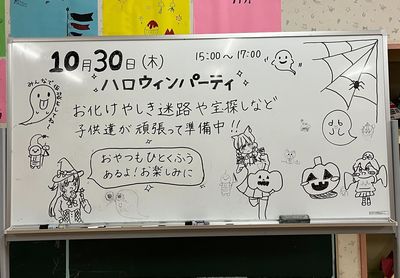 10月30日(木)
15:00〜17:00
ハロウィンパーティ
お化けやしき迷路や宝探しなど
子供達が頑張って準備中!!
おやつもひとくふう
あるよ!お楽しみに
みんなで